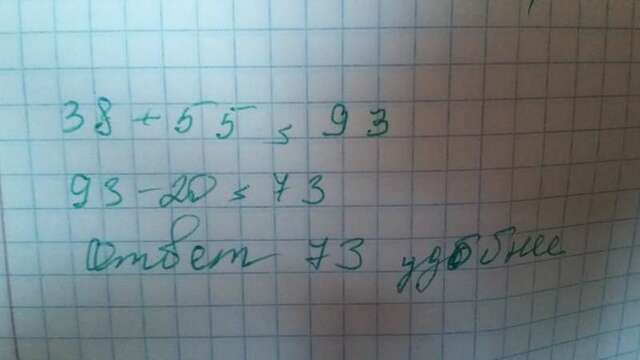 38 + 55 = 93
93 - 20 = 73
Ответ 73 удобнее